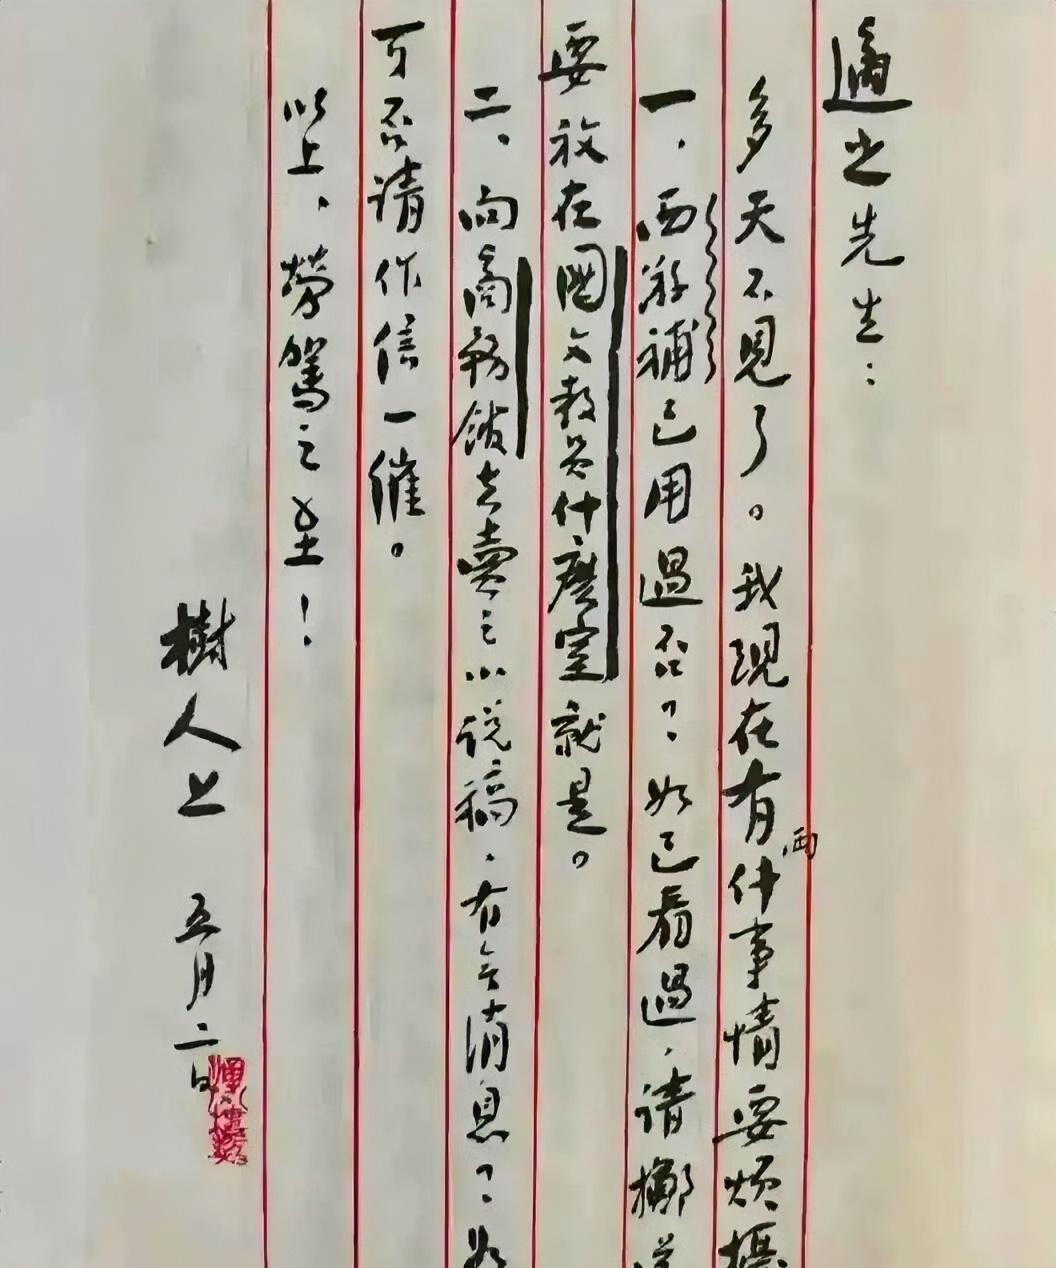 適之先生：
多天不見了。我現在有兩件事情要煩擾
一，西游補已用過否？如已看過，請擲
要放在國文教員什麽室就是。
二，向商務館去賣之小説稿，有無消息？如
可否請作信一催。
以上，勞駕之至！
樹人上 五月二日